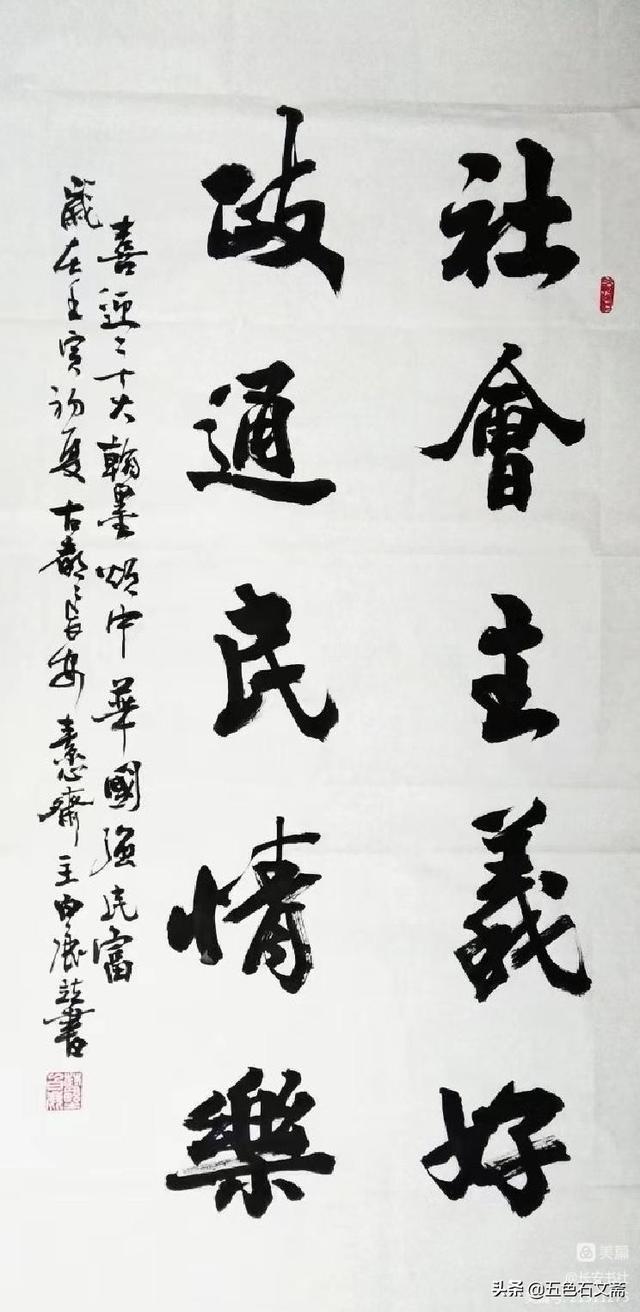 社會主義好
政通民情樂
喜迎二十大翰墨頌中華國強民富
歲在壬寅初夏古都長安
齋主
書
美篇
@长安书社
头条 @五色石文斋